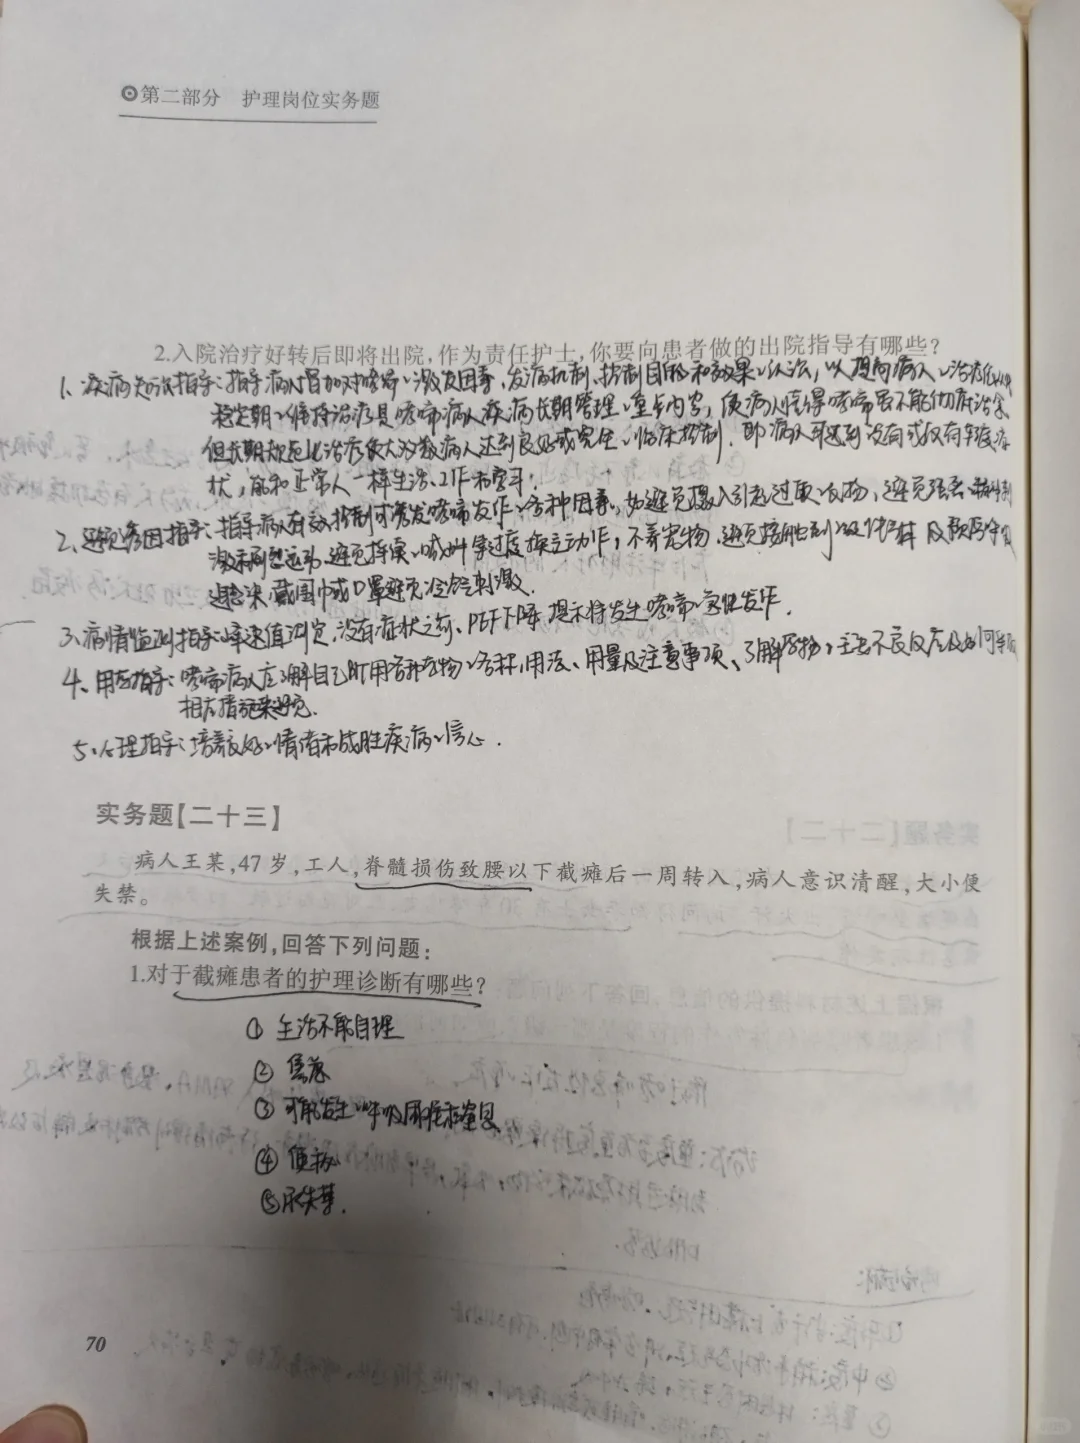 第二部分 护理岗位实务题
2.入院治疗好转后即将出院,作为责任护士,你要向患者做的出院指导有哪些?
1、疾病知识指导:指导病人增加对哮喘的激发因素,发病机制,控制目的和效果的认识,以提高病人的治疗
稳定期的维持治疗是哮喘病人疾病长期管理的重点内容,使病人懂得哮喘虽不能彻底治愈
但长期规范化治疗使大多数病人达到良好或完全的临床控制,即病人可达到没有或仅有轻度症
状,能和正常人一样生活、工作和学习.
2、避免诱因指导:指导病人有效控制可诱发哮喘发作的各种因素,如避免摄入引起过敏的食物,避免强烈的精神刺
激和剧烈运动,避免持续的喊叫等过度换气动作,不养宠物,避免接触刺激性气体及预防呼吸
道感染,戴围巾或口罩避免冷空气刺激.
3、病情监测指导:峰速值测定,没有症状之前、PEF下降,提示将发生哮喘的急性发作.
4、用药指导:哮喘病人应了解自己所用各种药物的名称,用法、用量及注意事项、了解药物的主要不良反应及如何采取
相应措施来避免.
5、心理指导:培养良好的情绪和战胜疾病的信心.
实务题【二十三】
病人王某,47岁,工人,脊髓损伤致腰以下截瘫后一周转入,病人意识清醒,大小便
失禁。
根据上述案例,回答下列问题:
1.对于截瘫患者的护理诊断有哪些?
① 生活不能自理
② 焦虑
③ 可能发生的呼吸困难和窒息
④ 便秘
⑤尿失禁.
70